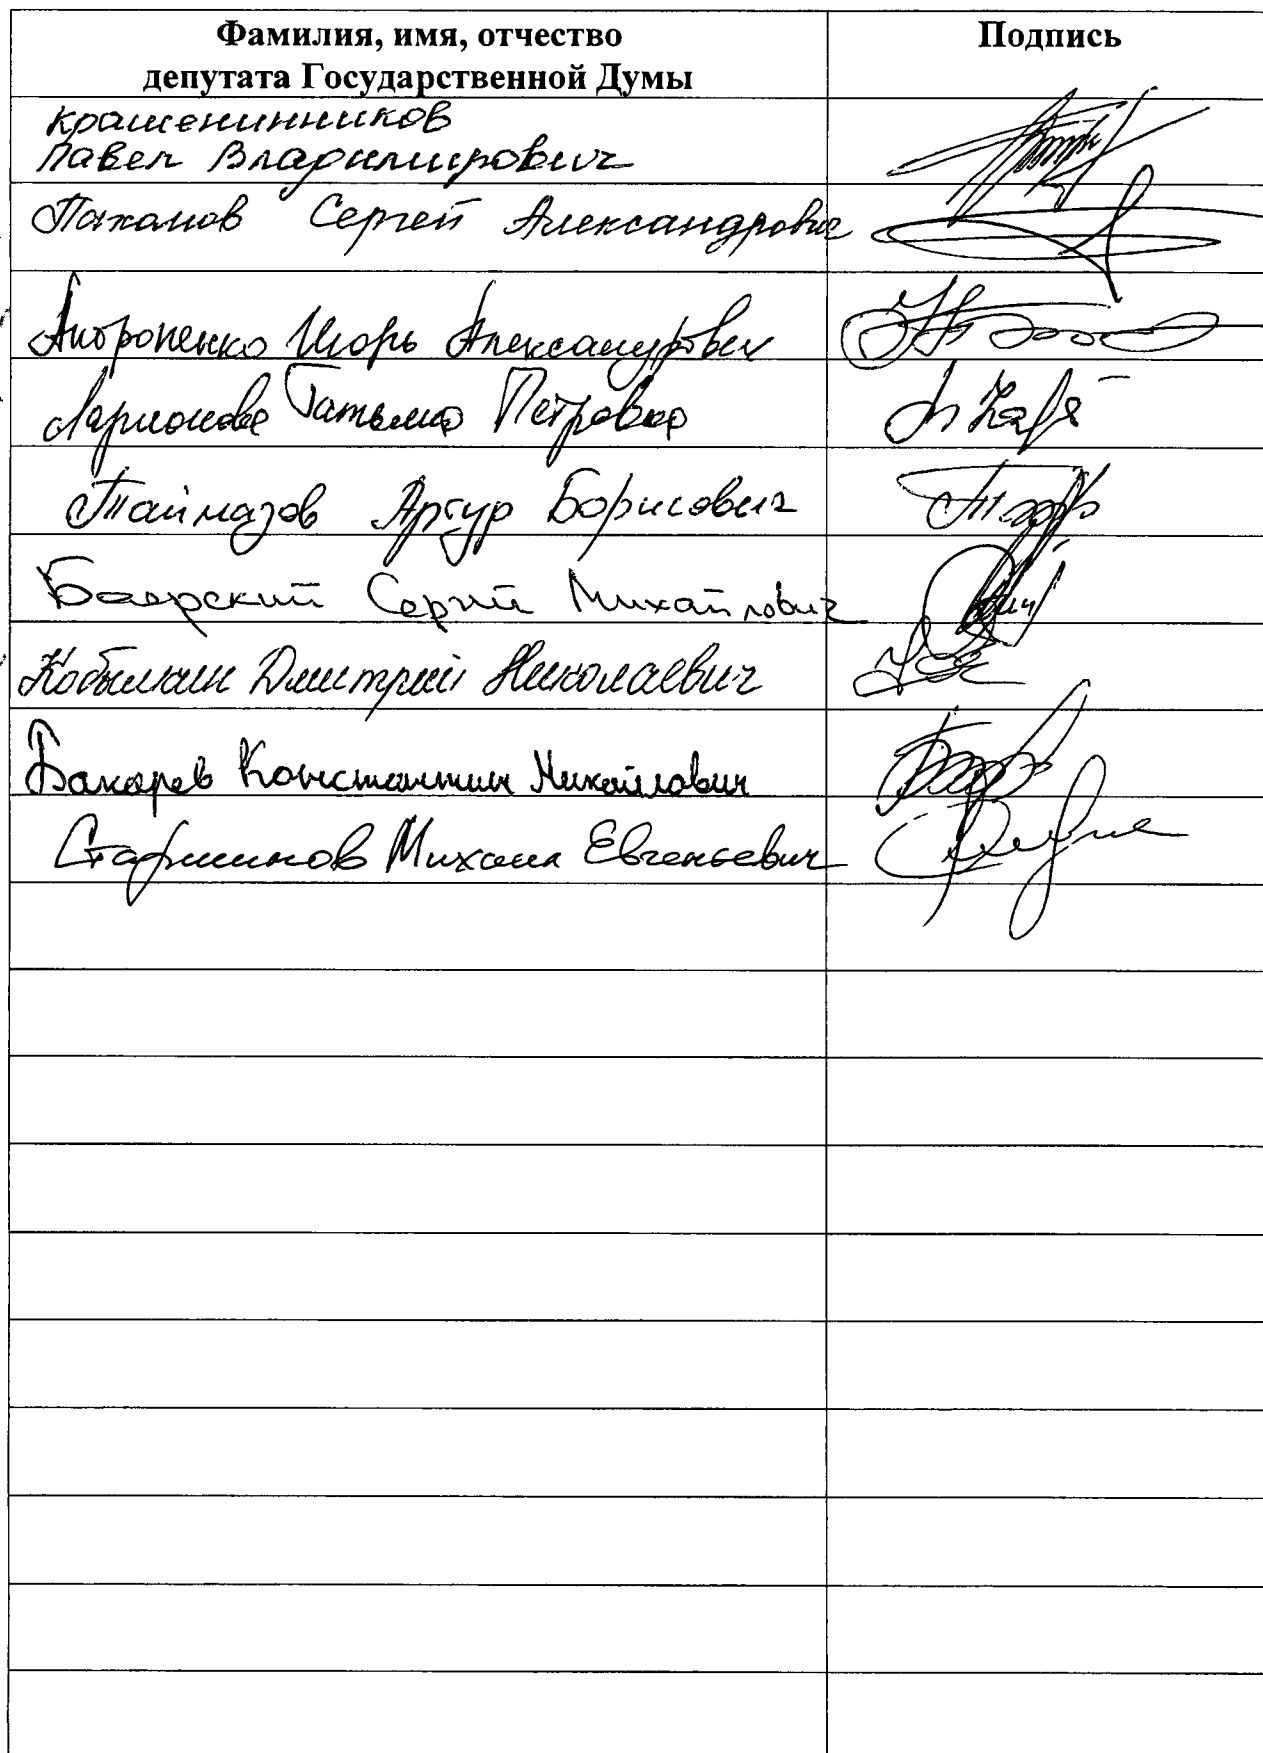 Фамилия, имя, отчество
депутата Государственной Думы
Подпись
Крашенинников
Павел Владимирович
Пахомов Сергей Александрович
Антропенко Игорь Александрович
Ларионова Татьяна Петровна
Таймазов Артур Борисович
Боярский Сергей Михайлович
Кобылкин Дмитрий Николаевич
Бахарев Константин Михайлович
Старшинов Михаил Евгеньевич